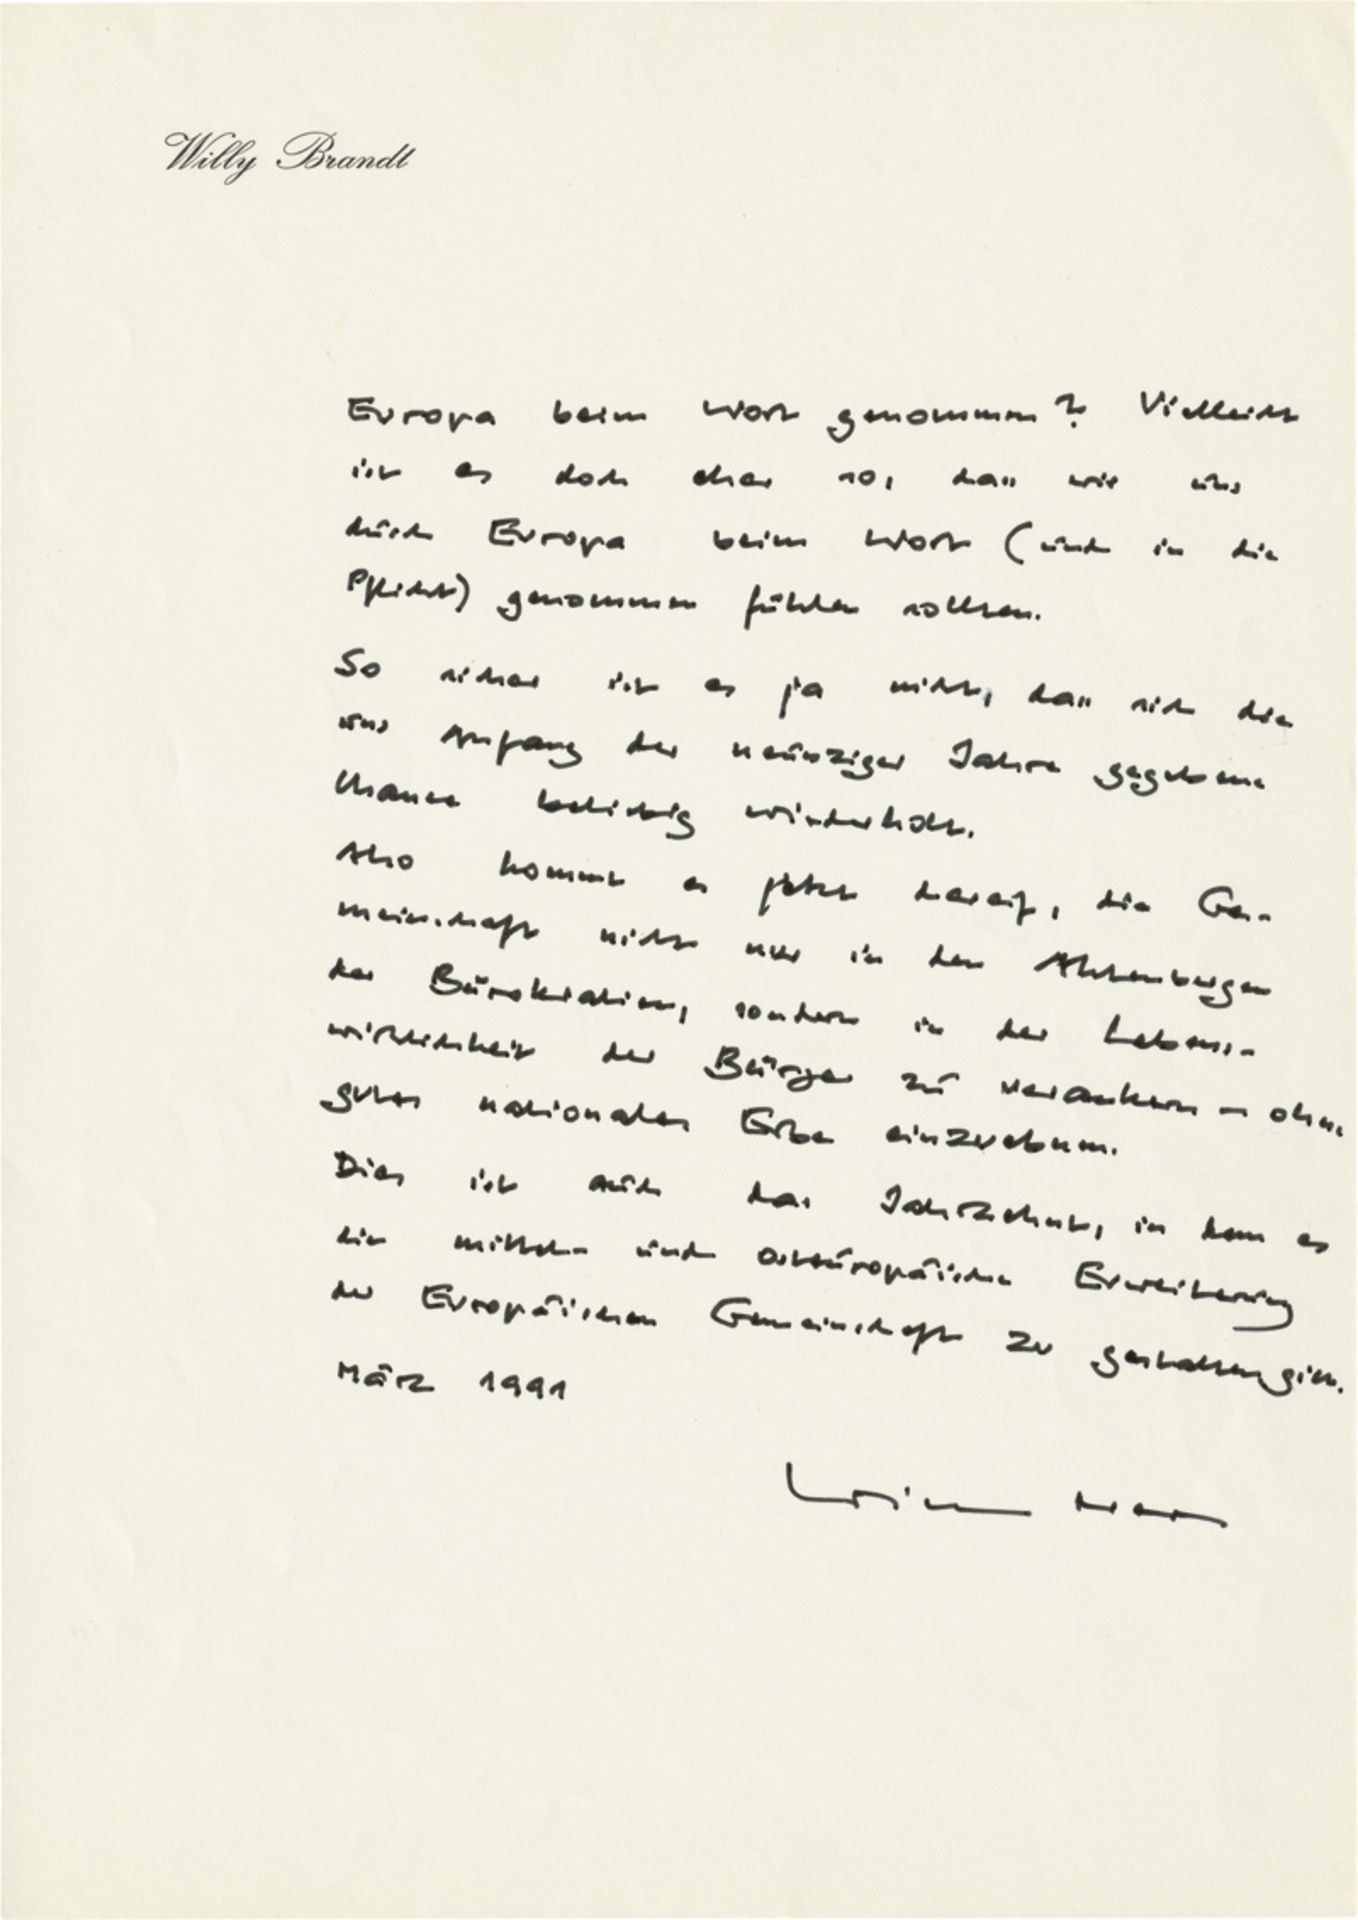 Willy Brandt
Europa beim Wort genommen? Vielleicht
ist es doch eher so, dass wir uns
durch Europa beim Wort (und in die
Pflicht) genommen fühlen sollten.
So sicher ist es ja nicht, dass sich die
uns Anfang der neunziger Jahre gegebene
Chance beliebig wiederholt.
Also kommt es jetzt darauf, die Ge-
meinschaft nicht nur in den Aktenbergen
der Bürokratien, sondern in der Lebens-
wirklichkeit der Bürger zu verankern – ohne
gutes nationales Erbe einzuebnen.
Dies ist auch das Jahrzehnt, in dem es
die mittel- und osteuropäische Erweiterung
der Europäischen Gemeinschaft zu gestalten gilt.
März 1991
Willy Brandt